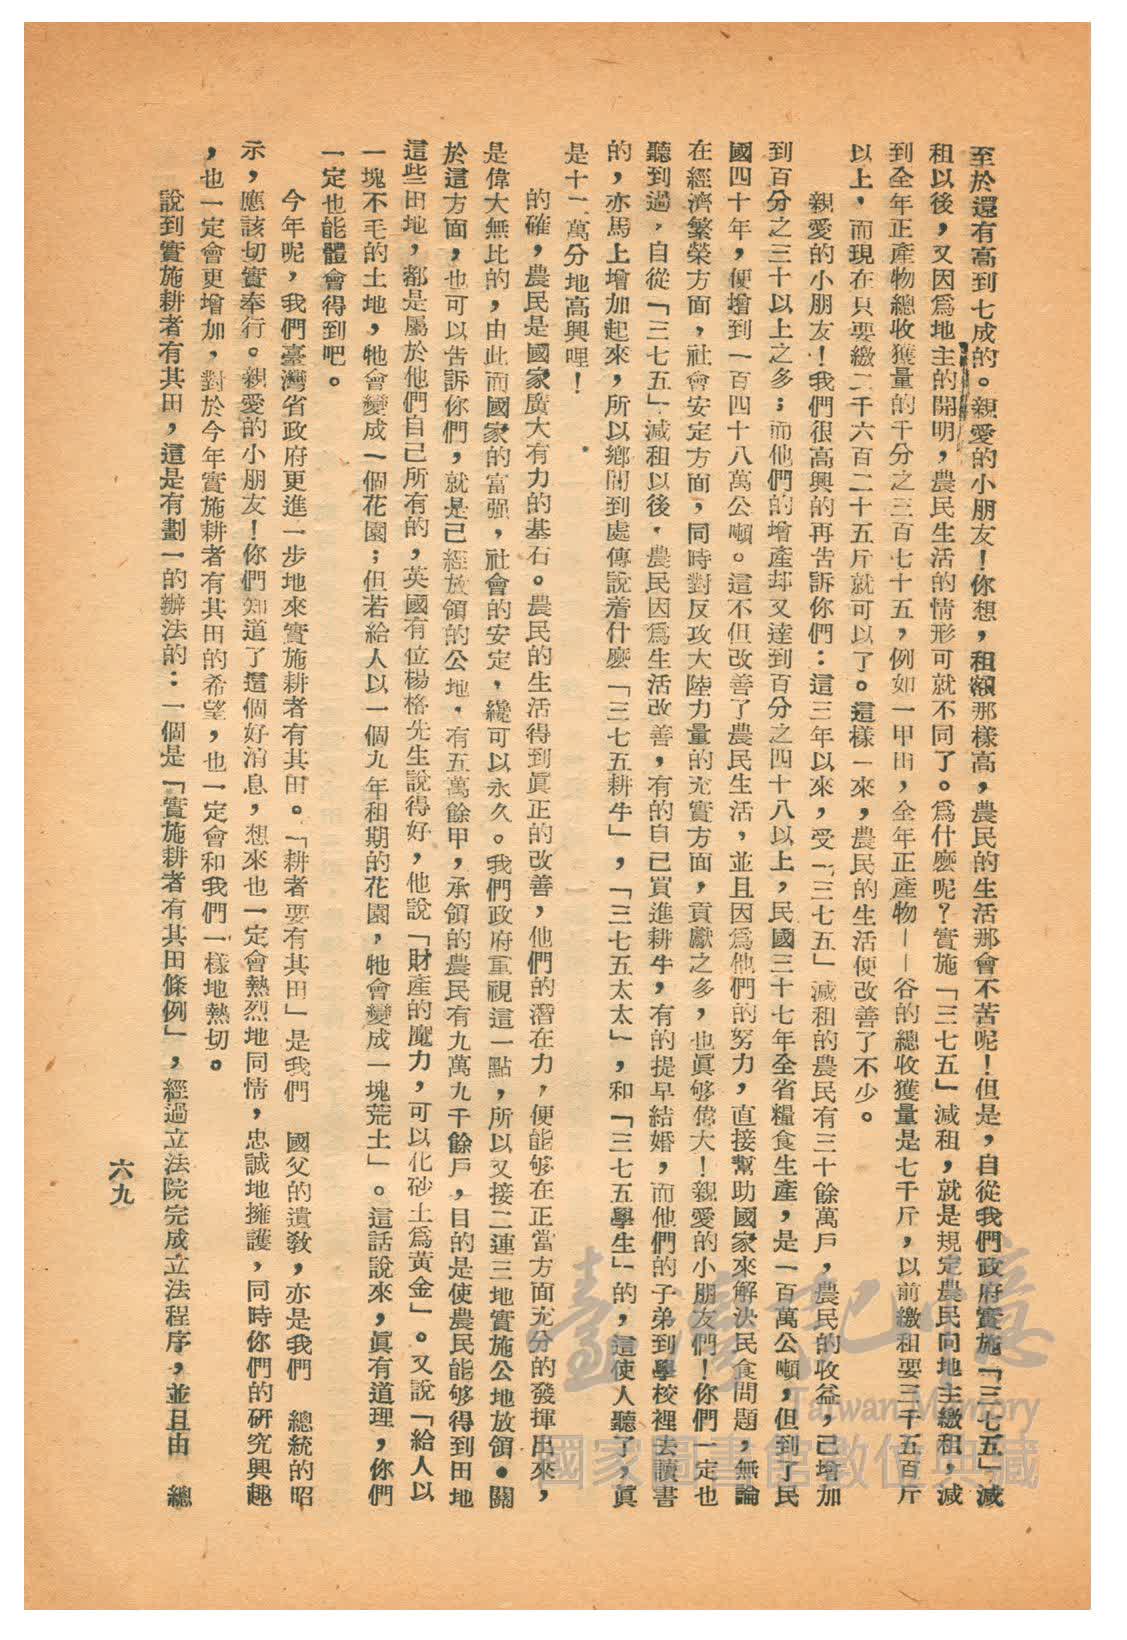 至於還有高到七成的。親愛的小朋友！你想，租額那樣高，農民的生活那會不苦呢！但是，自從我們政府實施「三七五」減
租以後，又因爲地主的開明，農民生活的情形可就不同了。爲什麼呢？實施「三七五」減租，就是規定農民向地主繳租，減
到全年正產物總收獲量的千分之三百七十五，例如一甲田，全年正產物——谷的總收獲量是七千斤，以前繳租要三千五百斤
以上，而現在只要繳二千六百二十五斤就可以了。這樣一來，農民的生活便改善了不少。
親愛的小朋友！我們很高興的再告訴你們：這三年以來，受「三七五」減租的農民有三十餘萬戶，農民的收益，已增加
到百分之三十以上之多；而他們的增產却又達到百分之四十八以上，民國三十七年全省糧食生產，是一百萬公噸，但到了民
國四十年，便增到一百四十八萬公噸。這不但改善了農民生活，並且因爲他們的努力，直接幫助國家來解決民食問題，無論
在經濟繁榮方面，社會安定方面，同時對反攻大陸力量的充實方面，貢獻之多，也眞够偉大！親愛的小朋友們！你們一定也
聽到過，自從「三七五」減租以後，農民因爲生活改善，有的自己買進耕牛，有的提早結婚，而他們的子弟到學校裡去讀書
的，亦馬上增加起來，所以鄉間到處傳說着什麼「三七五耕牛」，「三七五太太」，和「三七五學生」的，這使人聽了，眞
是十二萬分地高興哩！
的確，農民是國家廣大有力的基石。農民的生活得到眞正的改善，他們的潛在力，便能够在正當方面充分的發揮出來，
是偉大無比的，由此而國家的富强，社會的安定，纔可以永久。我們政府重視這一點，所以又接二連三地實施公地放領。關
於這方面，也可以告訴你們，就是已經放領的公地，有五萬餘甲，承領的農民有九萬九千餘戶，目的是使農民能够得到田地
這些田地，都是屬於他們自己所有的，英國有位楊格先生說得好，他說「財產的魔力，可以化砂土爲黃金」。又說「給人以
一塊不毛的土地，牠會變成一個花園；但若給人以一個九年租期的花園，牠會變成一塊荒土」。這話說來，眞有道理，你們
一定也能體會得到吧。
今年呢，我們臺灣省政府更進一步地來實施耕者有其田。「耕者要有其田」是我們　國父的遺敎，亦是我們　總統的昭
示，應該切實奉行。親愛的小朋友！你們知道了這個好消息，想來也一定會熱烈地同情，忠誠地擁護，同時你們的研究興趣
，也一定會更增加，對於今年實施耕者有其田的希望，也一定會和我們一樣地熱切。
說到實施耕者有其田，這是有劃一的辦法的：一個是「實施耕者有其田條例」，經過立法院完成立法程序，並且由　總
六九
臺灣記憶
Taiwan Memory
國家圖書館數位典藏